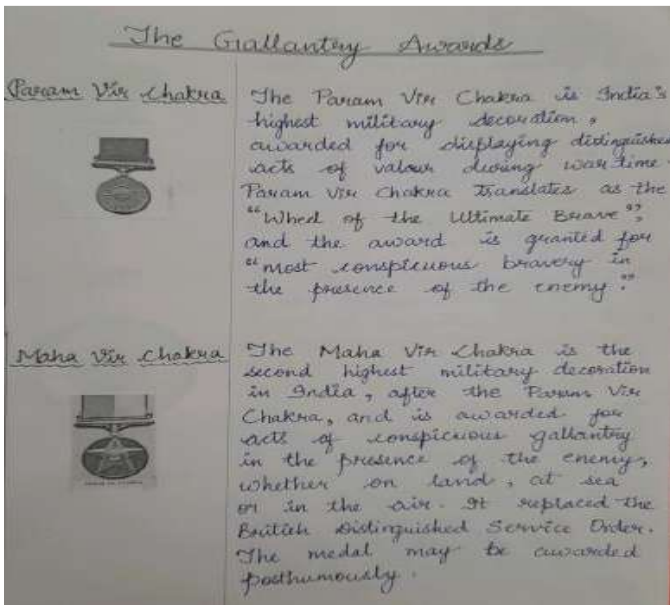 The Gallantry Awards
Param Vir Chakra
The Param Vir Chakra is India's
highest military decoration,
awarded for displaying distinguished
acts of valour during wartime.
Param Vir Chakra Translates as the
"Wheel of the Ultimate Brave",
and the award is granted for
"most conspicuous bravery in
the presence of the enemy."
Maha Vir Chakra
The Maha Vir Chakra is the
second highest military decoration
in India, after the Param Vir
Chakra, and is awarded for
acts of conspicuous gallantry
in the presence of the enemy,
whether on land, at sea
or in the air. It replaced the
British Distinguished Service Order.
The medal may be awarded
posthumously.